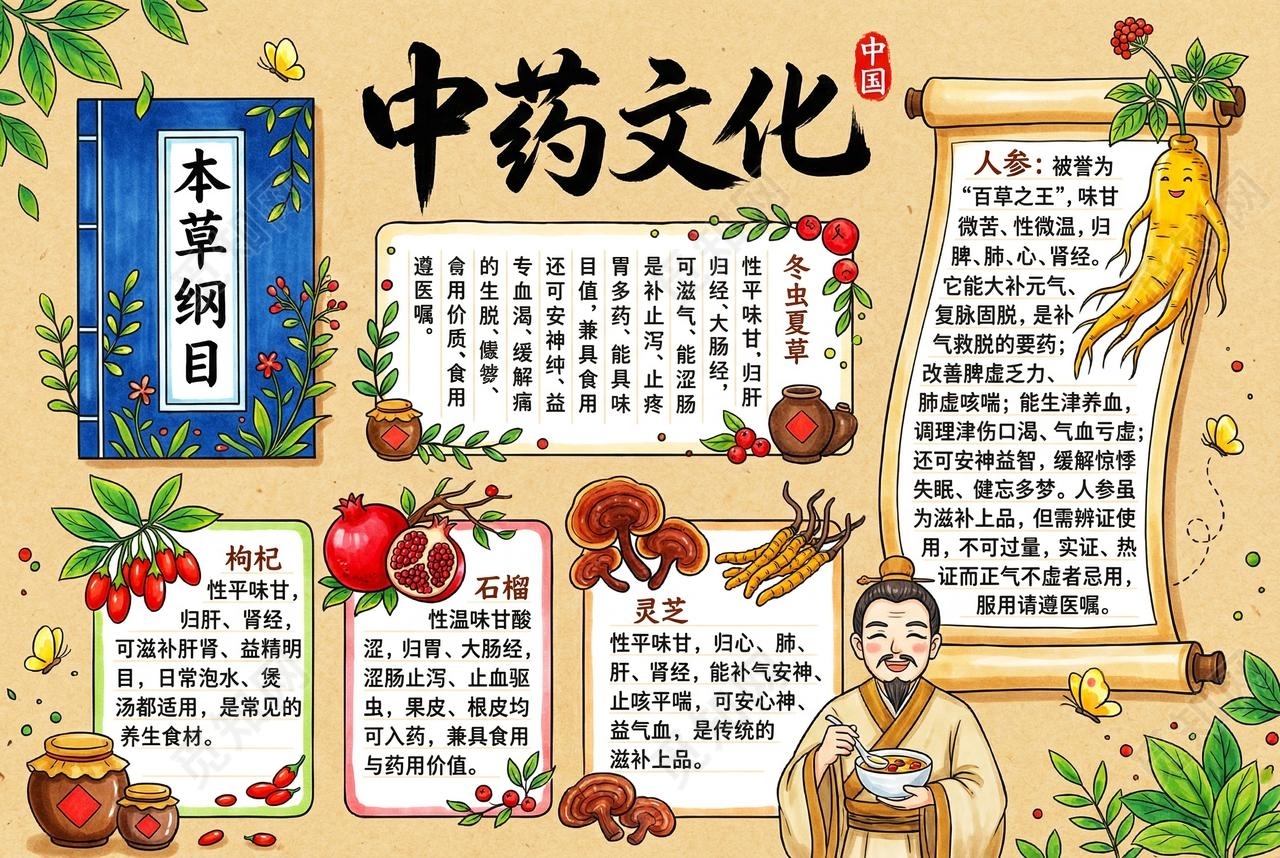 中药文化
中国
本草纲目
冬虫夏草
性平味甘，归肝
归经、大肠经，
可滋气、能涩肠
是补止泻、止疼
胃多药、能具味
目值，兼具食用
还可安神纯、益
专血渴、缓解痛
的生脱、
食用价质、食用
遵医嘱。
人参：被誉为
“百草之王”，味甘
微苦、性微温，归
脾、肺、心、肾经。
它能大补元气、
复脉固脱，是补
气救脱的要药；
改善脾虚乏力、
肺虚咳喘；能生津养血，
调理津伤口渴、气血亏虚；
还可安神益智，缓解惊悸
失眠、健忘多梦。人参虽
为滋补上品，但需辨证使
用，不可过量，实证、热
证而正气不虚者忌用，
服用请遵医嘱。
枸杞
性平味甘，
归肝、肾经，
可滋补肝肾、益精明
目，日常泡水、煲
汤都适用，是常见的
养生食材。
石榴
性温味甘酸
涩，归胃、大肠经，
涩肠止泻、止血驱
虫，果皮、根皮均
可入药，兼具食用
与药用价值。
灵芝
性平味甘，归心、肺、
肝、肾经，能补气安神、
止咳平喘，可安心神、
益气血，是传统的
滋补上品。